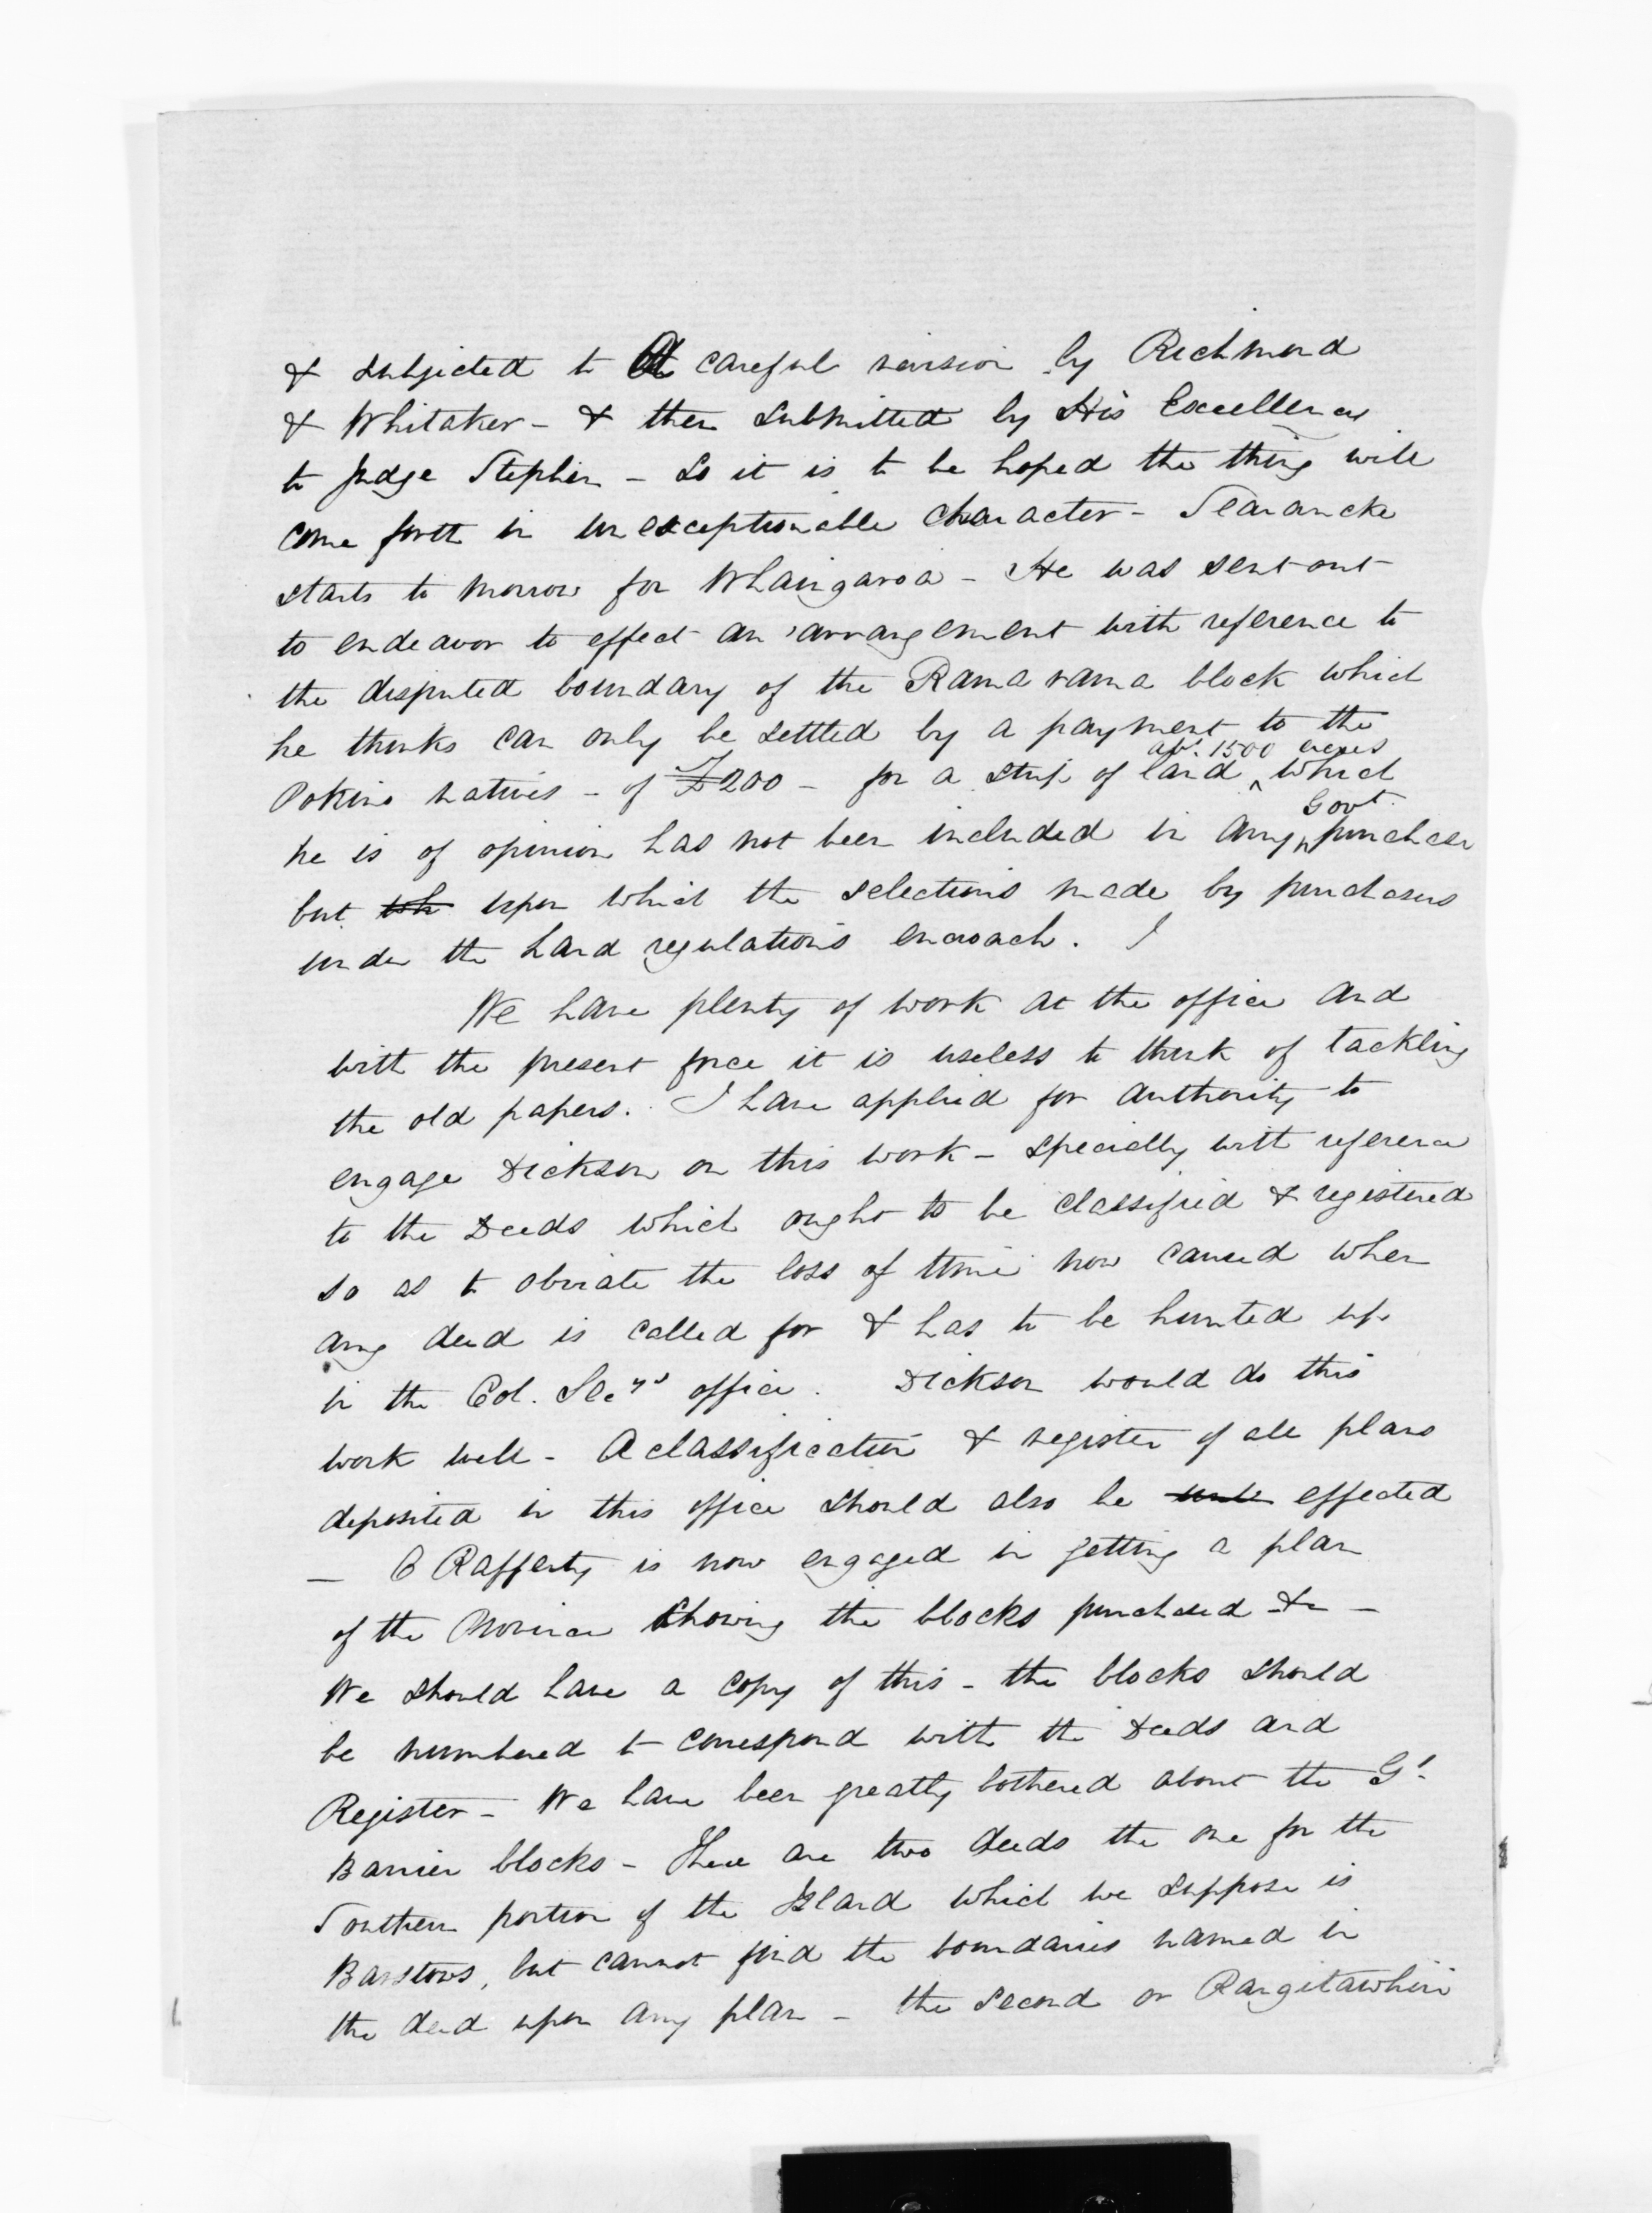 & subjected to A careful revision by Richmond
& Whitaker - & then submitted by His Excellency
to Judge Stephen - So it is to be hoped the thing will
come forth in unexceptionable character - Searancke
starts to morrow for Whaingaroa - He was sent out
to endeavor to effect an arrangement with reference to
the disputed boundary of the Ramarama block which
he thinks can only be settled by a payment to the
abt. 1500 acres
Pokino natives - of £200 - for a strip of land ^ which
Govt.
he is of opinion has not been included in any ^ purchase
but wh upon which the selections made by purchasers
under the Land regulations encroach.
We have plenty of work at the office and
with the present force it is useless to think of tackling
the old papers. I have applied for authority to
engage Dickson on this work - specially with reference
to the Deeds which ought to be classified & registered
so as to obviate the loss of time now caused when
any deed is called for & has to be hunted up
in the Col. Secys office. Dickson would do this
work well - A classification & register of all plans
deposited in this office should also be effected
- O Rafferty is now engaged in getting a plan
of the Province showing the blocks purchased &c -
We should have a copy of this - the blocks should
be numbered to correspond with the Deeds and
Register - We have been greatly bothered about the Gt.
Barrier blocks - There are two deeds the one for the
Southern portion of the Island which we suppose is
Barstows, but cannot find the boundaries named in
the deed upon any plan - the second or Rangitawhiri